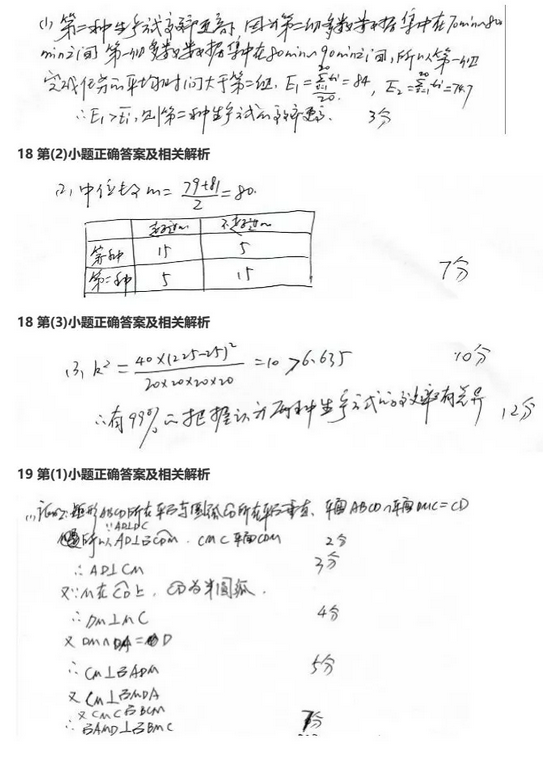 (1) 第二种生产方式效率更高,因为第二组多数数据集中在70min~80
min之间 第一组多数数据集中在80min~90min之间,所以第一组
完成任务的平均时间大于第二组. E₁ = = 84, E₂ = = 74.7
∴E₁>E₂, 则第二种生产方式的效率更高. 3分
18 第(2)小题正确答案及相关解析
(2) 中位数 m = (79+81)/2 = 80.
超过m 不超过m
第一种 15 5
第二种 5 15
7分
18 第(3)小题正确答案及相关解析
(3) k² = 40×(225-25)²/20×20×20×20 = 10 > 6.635 10分
∴有99%的把握认为两种生产方式的效率有差异 12分
19 第(1)小题正确答案及相关解析
(1) 证明: 矩形ABCD所在平面与圆弧CD所在平面垂直, 平面ABCD∩平面DMC=CD
∵AD⊥DC
所以AD⊥面CDM. CM⊂平面CDM 2分
∴AD⊥CM 3分
又∵M在CD上, CD为半圆弧.
∴DM⊥MC 4分
又DM∩DA=D
∴CM⊥面ADM 5分
又CM⊥面MDA
又CM⊂面BCM
∴面AMD⊥面BMC 7分